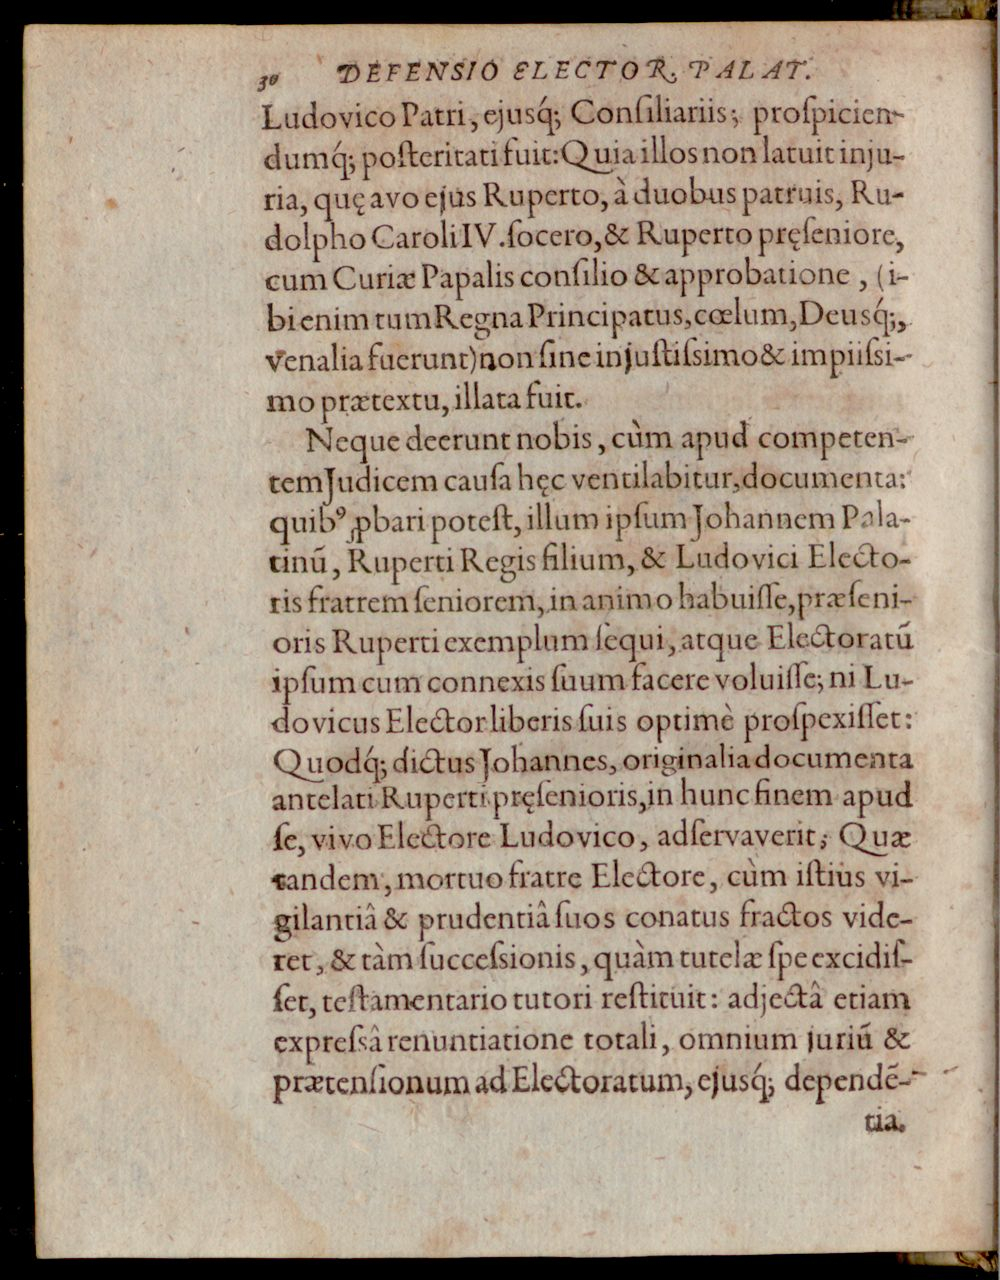 30 DEFENSIO ELECTOR, PALAT.
Ludovico Patri, ejusq́; Conſiliariis; proſpicien-
dumq́; poſteritati fuit: Quia illos non latuit inju-
ria, quę avo ejus Ruperto, à duobus patruis, Ru-
dolpho Caroli IV. ſocero, & Ruperto pręſeniore,
cum Curiæ Papalis conſilio & approbatione, (i-
bi enim tum Regna Principatus, cœlum, Deusq́;,
venalia fuerunt) non ſine injuſtiſsimo & impiiſsi-
mo prætextu, illata fuit.
Neque deerunt nobis, cùm apud competen-
tem Judicem cauſa hęc ventilabitur, documenta:
quibꝰ ꝓbari poteſt, illum ipſum Johannem Pala-
tinū, Ruperti Regis filium, & Ludovici Electo-
ris fratrem ſeniorem, in animo habuiſſe, præſeni-
oris Ruperti exemplum ſequi, atque Electoratū
ipſum cum connexis ſuum facere voluiſſe; ni Lu-
dovicus Elector liberis ſuis optimè proſpexiſſet:
Quodq́; dictus Johannes, originalia documenta
antelati Ruperti pręſenioris, in hunc finem apud
ſe, vivo Electore Ludovico, adſervaverit; Quæ
tandem, mortuo fratre Electore, cùm iſtius vi-
gilantiâ & prudentiâ ſuos conatus fractos vide-
ret, & tàm ſucceſsionis, quàm tutelæ ſpe excidiſ-
ſet, teſtamentario tutori reſtituit: adjectâ etiam
expreſsâ renuntiatione totali, omnium juriū &
prætenſionum ad Electoratum, ejusq́; dependē-
tia.